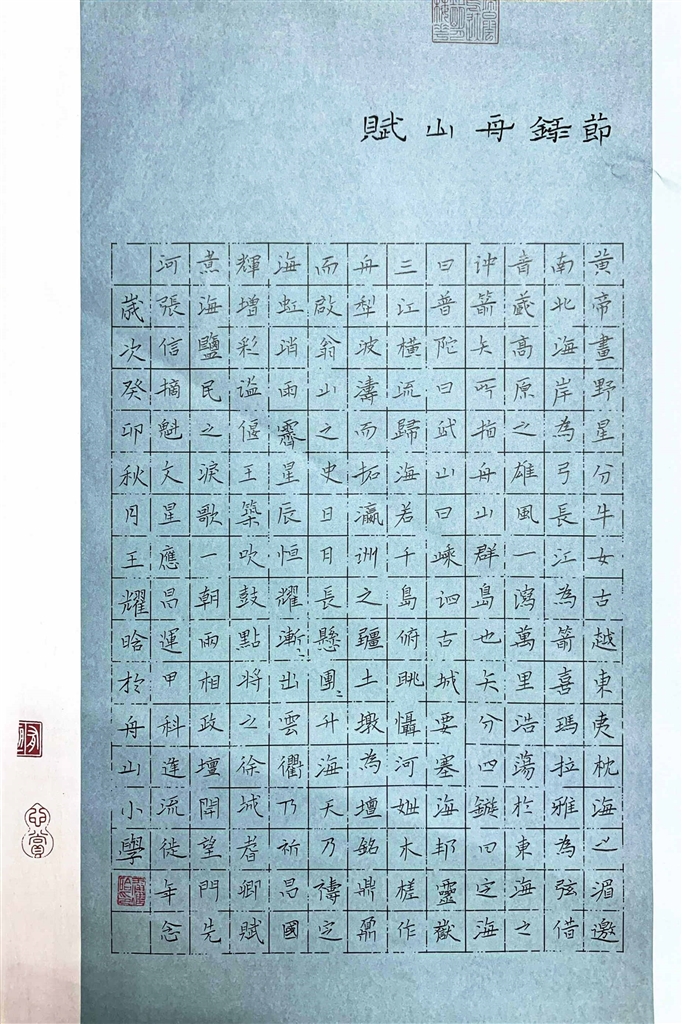 節錄舟山賦
黃帝畫野星分牛女古越東夷枕海之湄邀
南北海岸為弓長江為箭喜瑪拉雅為弦借
青藏高原之雄風一瀉萬里浩蕩於東海之
沖箭矢所指舟山群島也矢分四鏃曰定海
曰普陀曰岱山曰嵊泗古城要塞海邦靈嶽
三江橫流歸海若千島俯眺懾河妣木槎作
舟犁波濤而拓瀛洲之疆土墩為壇銘鼎鼐
而啟翁山之史日月長懸團〻升海天乃禱定
海虹消雨霽星辰恒耀漸〻出雲衢乃祈昌國
輝增彩謚偃王築吹鼓點將之徐城耆卿賦
煮海鹽民之淚歌一朝兩相政壇開望門先
河張信摘魁文星應昌運甲科連流徙年念
歲次癸卯秋月王耀晗於舟山小學